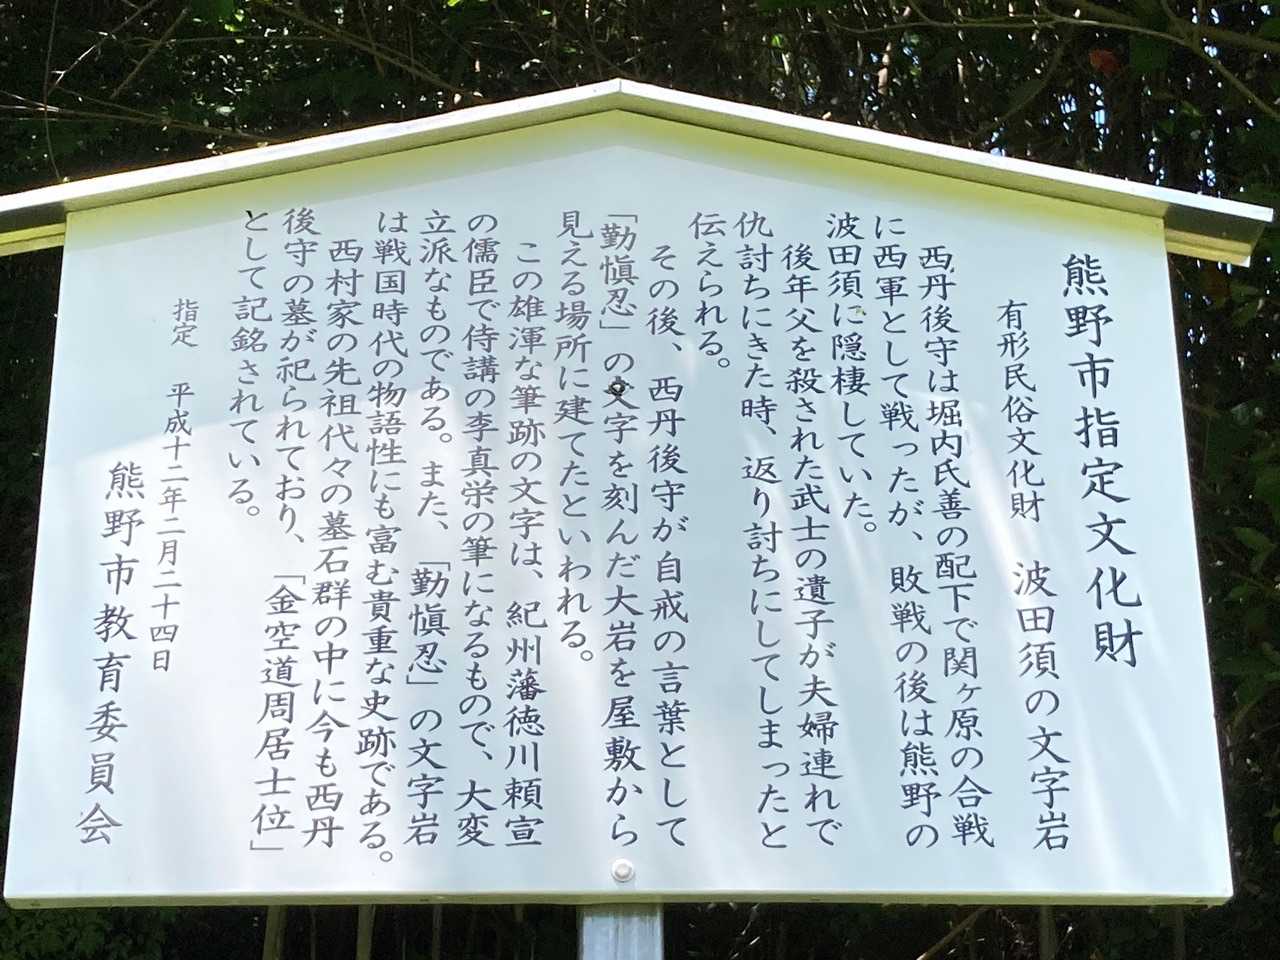 熊野市指定文化財
有形民俗文化財　波田須の文字岩
西丹後守は堀内氏善の配下で関ヶ原の合戦
に西軍として戦ったが、敗戦の後は熊野の
波田須に隠棲していた。
後年父を殺された武士の遺子が夫婦連れで
仇討ちにきた時、返り討ちにしてしまったと
伝えられる。
その後、西丹後守が自戒の言葉として
「勤愼忍」の文字を刻んだ大岩を屋敷から
見える場所に建てたといわれる。
この雄渾な筆跡の文字は、紀州藩徳川頼宣
の儒臣で侍講の李真栄の筆になるもので、大変
立派なものである。また、「勤愼忍」の文字岩
は戦国時代の物語性にも富む貴重な史跡である。
西村家の先祖代々の墓石群の中に今も西丹
後守の墓が祀られており、「金空道周居士位」
として記銘されている。
指定　平成十二年二月二十四日
熊野市教育委員会